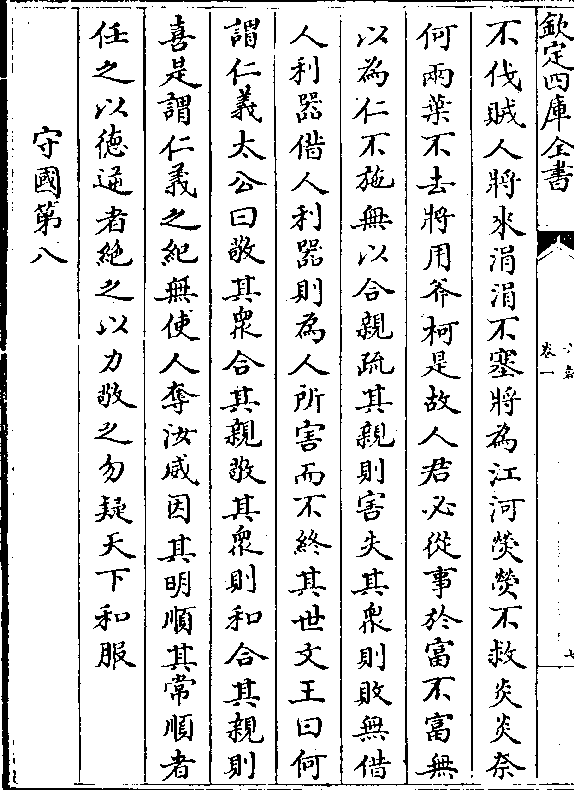 欽定四庫全書
卷一
七
不伐賊人將來涓涓不塞將為江河熒熒不救炎炎奈
何兩葉不去將用斧柯是故人君必從事於富不富無
以為仁不施無以合親疏其親則害失其衆則敗無借
人利器借人利器則為人所害而不終其世文王曰何
謂仁義太公曰敬其衆合其親敬其衆則和合其親則
喜是謂仁義之紀無使人奪汝威因其明順其常順者
任之以德逆者絶之以力敬之勿疑天下和服
守國第八